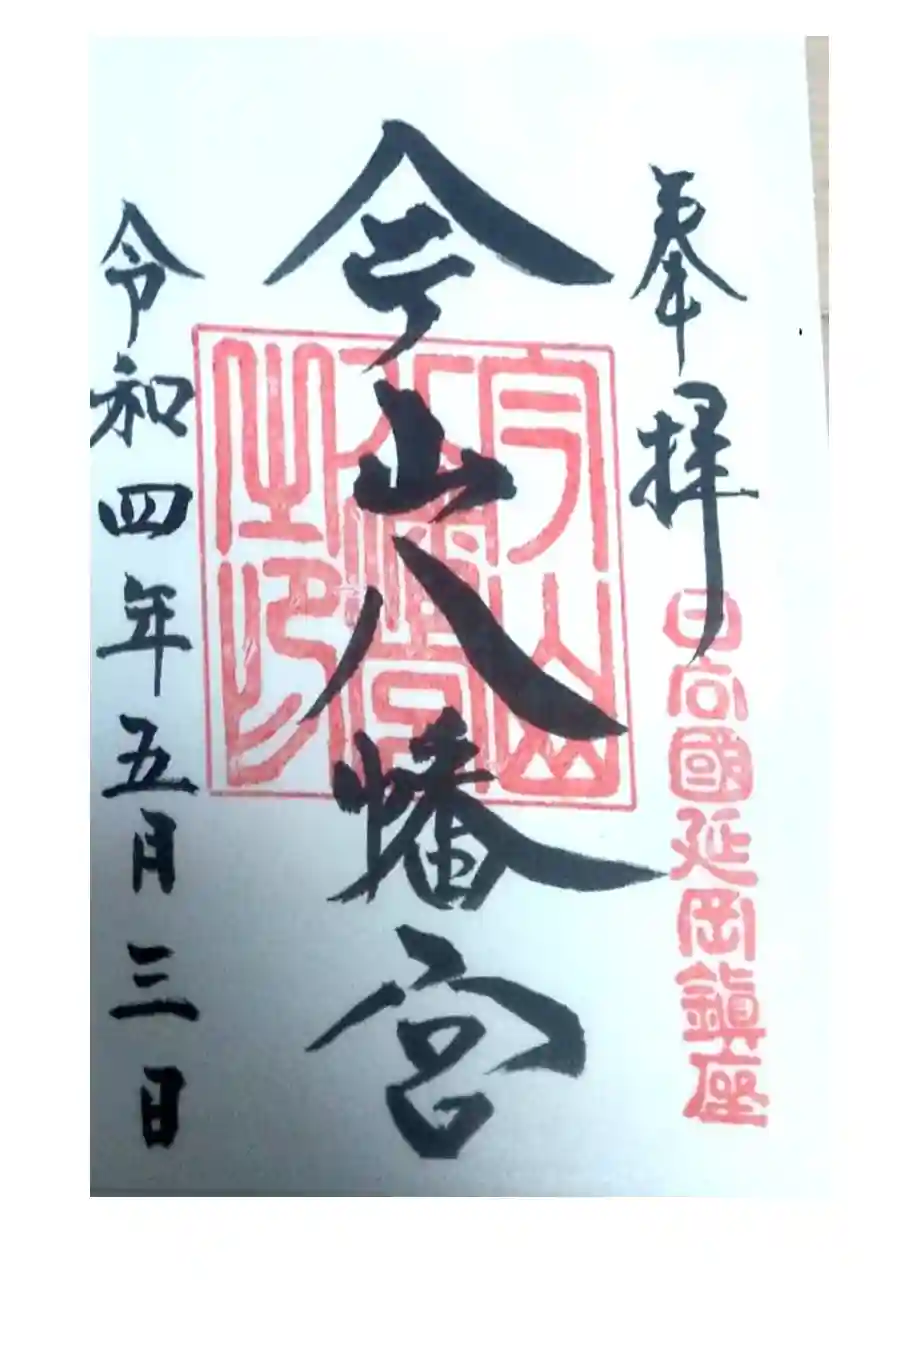 奉拝
日向國延岡鎮座
今山八幡宮
今山
八幡宮
之印
令和四年五月三日